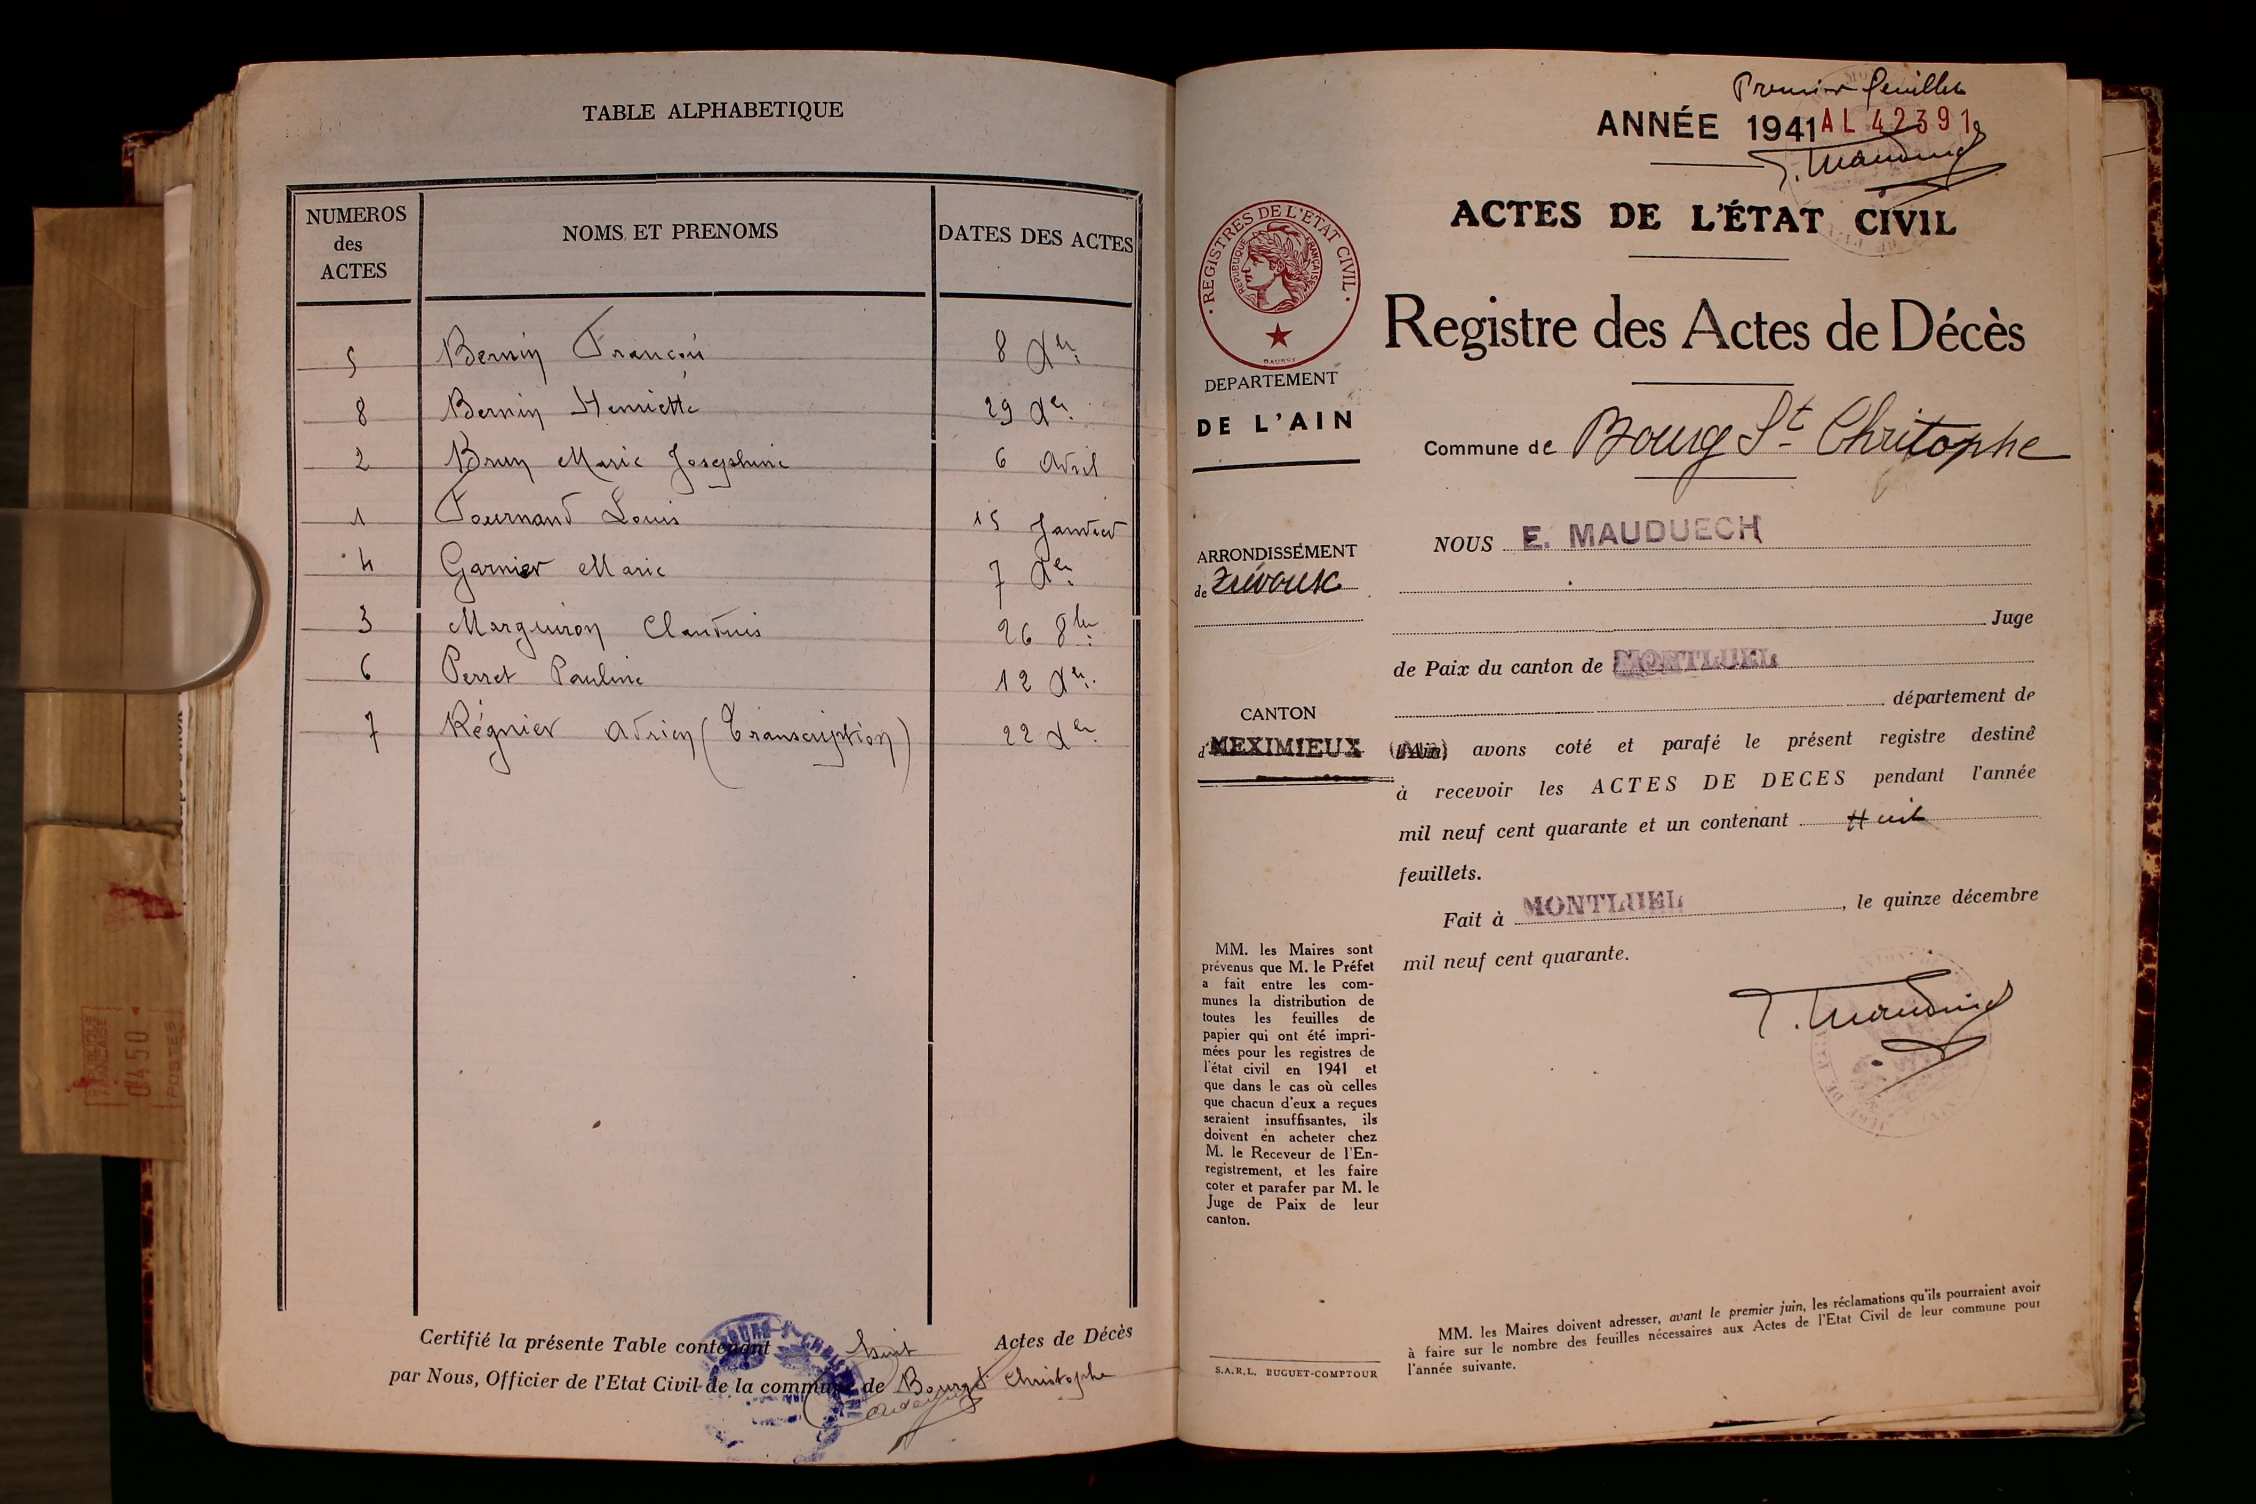 TABLE ALPHABETIQUE
NUMEROS des ACTES
NOMS ET PRENOMS
DATES DES ACTES
5 Bernin François 8 Xer
8 Bernin Henriette 29 Xer
2 Brun Marie Josephine 6 Avril
1 Fournand Louis 15 Janvier
4 Garnier Marie 7 Xer
3 Marguiron Claudius 26 8bre
6 Perret Pauline 12 Xer
7 Régnier Adrien (Transcription) 22 Xer
Certifié la présente Table contenant huit Actes de Décès
par Nous, Officier de l'Etat Civil de la commune de Bourg St Christophe
Premier feuillet
ANNÉE 1941 AL 42391
ACTES DE L'ÉTAT CIVIL
Registre des Actes de Décès
Commune de Bourg St Chritophe
REGISTRES DE L'ETAT CIVIL
REPUBLIQUE FRANÇAISE
DEPARTEMENT
DE L'AIN
ARRONDISSEMENT
de Trévoux
CANTON
d MEXIMIEUX
NOUS E. MAUDUECH
Juge
de Paix du canton de MONTLUEL
département de
(Ain) avons coté et parafé le présent registre destiné
à recevoir les ACTES DE DECES pendant l'année
mil neuf cent quarante et un contenant Huit
feuillets.
Fait à MONTLUEL, le quinze décembre
mil neuf cent quarante.
MM. les Maires sont
prévenus que M. le Préfet
a fait entre les com-
munes la distribution de
toutes les feuilles de
papier qui ont été impri-
mées pour les registres de
l'état civil en 1941 et
que dans le cas où celles
que chacun d'eux a reçues
seraient insuffisantes, ils
doivent en acheter chez
M. le Receveur de l'En-
registrement, et les faire
coter et parafer par M. le
Juge de Paix de leur
canton.
S.A.R.L. BUGUET-COMPTOUR
MM. les Maires doivent adresser, avant le premier juin, les réclamations qu'ils pourraient avoir
à faire sur le nombre des feuilles nécessaires aux Actes de l'Etat Civil de leur commune pour
l'année suivante.
0450
POSTES